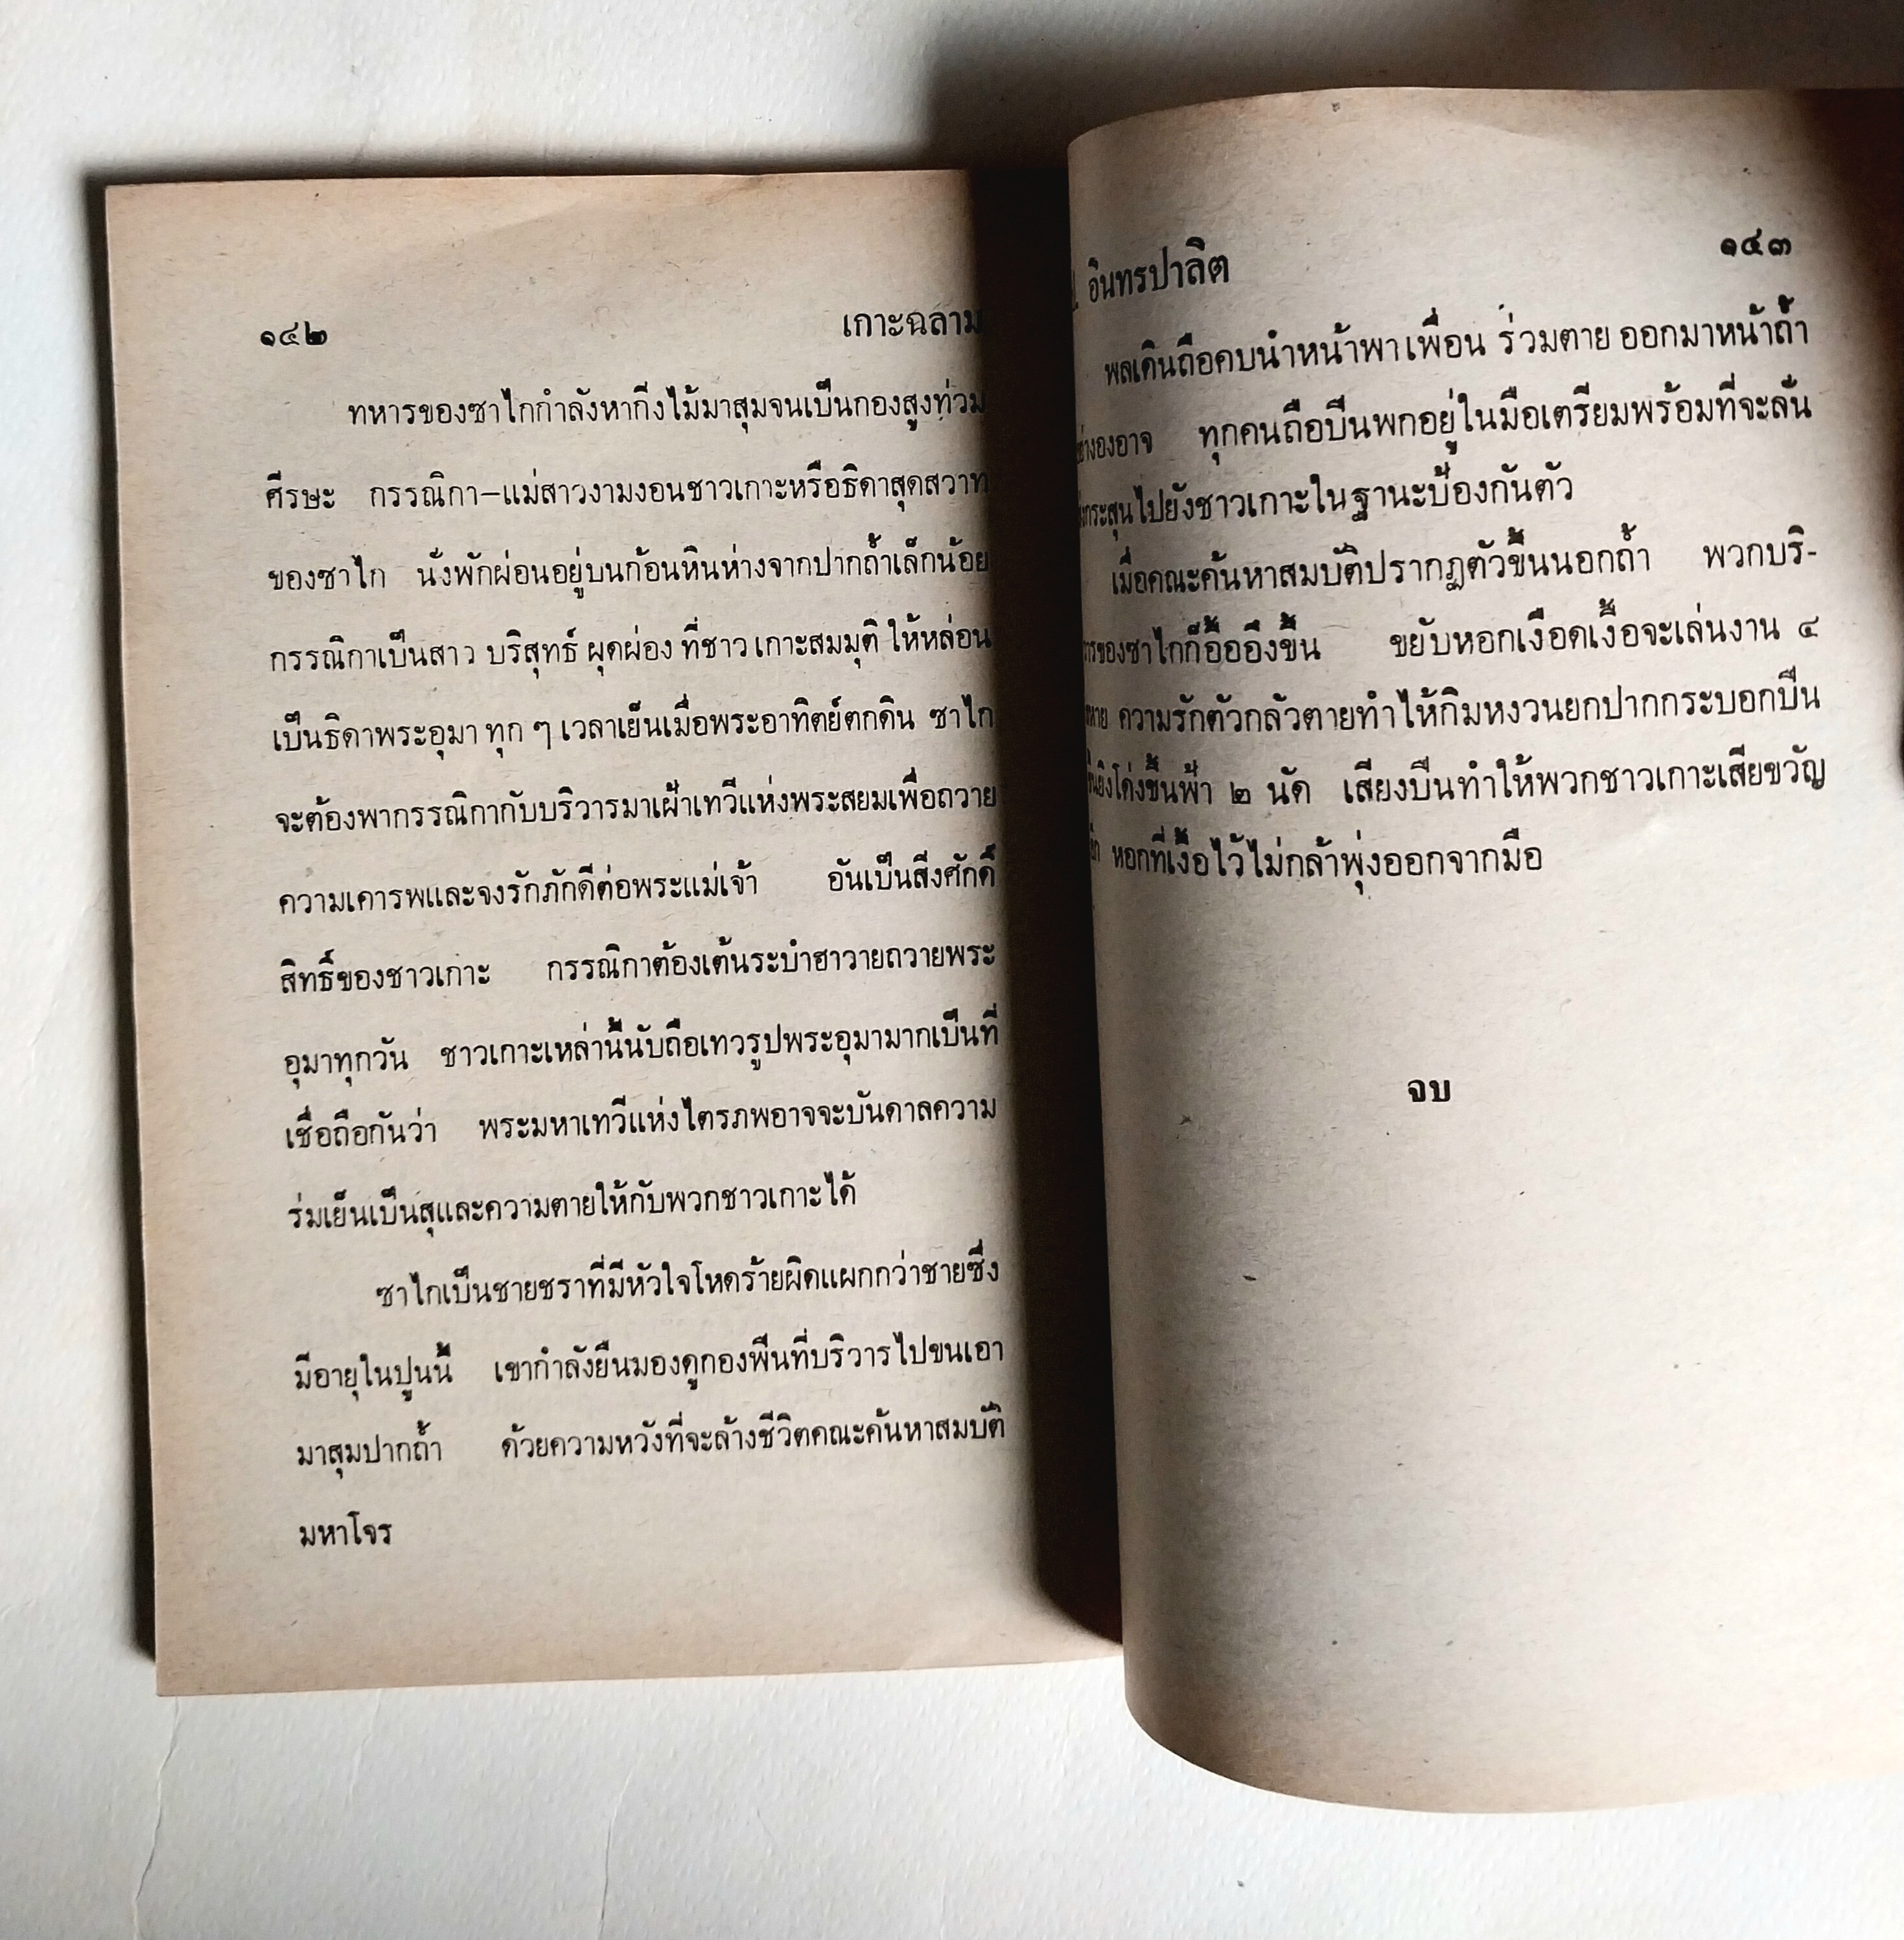 ๑๔๒ เกาะฉลาม
ทหารของซาไกกำลังหากิ่งไม้มาสุมจนเป็นกองสูงท่วม
ศีรษะ กรรณิกา–แม่สาวงามงอนชาวเกาะหรือธิดาสุดสวาท
ของซาไก นั่งพักผ่อนอยู่บนก้อนหินห่างจากปากถ้ำเล็กน้อย
กรรณิกาเป็นสาว บริสุทธ์ ผุดผ่อง ที่ชาว เกาะสมมุติ ให้หล่อน
เป็นธิดาพระอุมา ทุก ๆ เวลาเย็นเมื่อพระอาทิตย์ตกดิน ซาไก
จะต้องพากรรณิกากับบริวารมาเฝ้าเทวีแห่งพระสยมเพื่อถวาย
ความเคารพและจงรักภักดีต่อพระแม่เจ้า อันเป็นสิ่งศักดิ์
สิทธิ์ของชาวเกาะ กรรณิกาต้องเต้นระบำฮาวายถวายพระ
อุมาทุกวัน ชาวเกาะเหล่านี้นับถือเทวรูปพระอุมามากเป็นที่
เชื่อถือกันว่า พระมหาเทวีแห่งไตรภพอาจจะบันดาลความ
ร่มเย็นเป็นสุและความตายให้กับพวกชาวเกาะได้
ซาไกเป็นชายชราที่มีหัวใจโหดร้ายผิดแผกกว่าชายซึ่ง
มีอายุในปูนนี้ เขากำลังยืนมองดูกองฟืนที่บริวารไปขนเอา
มาสุมปากถ้ำ ด้วยความหวังที่จะล้างชีวิตคณะค้นหาสมบัติ
มหาโจร
อินทรปาลิต ๑๔๓
พลเดินถือคบนำหน้าพาเพื่อน ร่วมตาย ออกมาหน้าถ้ำ
องอาจ ทุกคนถือปืนพกอยู่ในมือเตรียมพร้อมที่จะลั่น
กระสุนไปยังชาวเกาะในฐานะป้องกันตัว
เมื่อคณะค้นหาสมบัติปรากฏตัวขึ้นนอกถ้ำ พวกบริ-
ของซาไกก็อื้ออึงขึ้น ขยับหอกเงือดเงื้อจะเล่นงาน ๔
ความรักตัวกลัวตายทำไห้กิมหงวนยกปากกระบอกปืน
ยิงโด่งขึ้นฟ้า ๒ นัด เสียงปืนทำให้พวกชาวเกาะเสียขวัญ
หอกที่เงื้อไว้ไม่กล้าพุ่งออกจากมือ
จบ